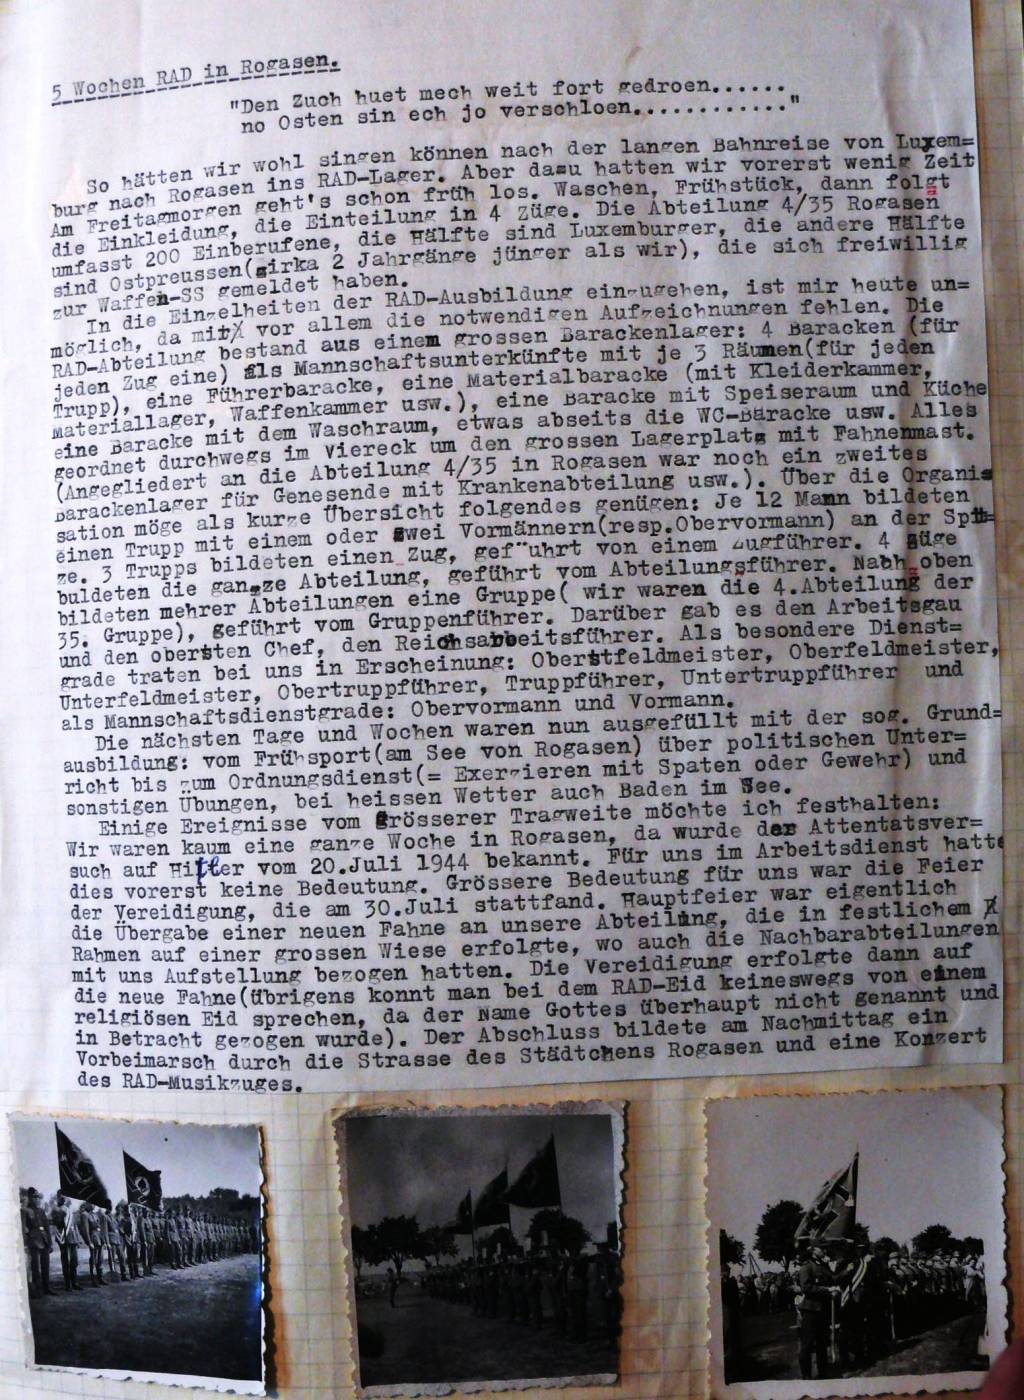 5 Wochen RAD in Rogasen.
"Den Zuch huet mech weit fort gedroen......
no Osten sin ech jo verschloen............"
So hätten wir wohl singen können nach der langen Bahnreise von Luxem=
burg nach Rogasen ins RAD-Lager. Aber dazu hatten wir vorerst wenig Zeit
Am Freitagmorgen geht's schon früh los. Waschen, Frühstück, dann folgt
die Einkleidung, die Einteilung in 4 Züge. Die Abteilung 4/35 Rogasen
umfasst 200 Einberufene, die Hälfte sind Luxemburger, die andere Hälfte
sind Ostpreussen(zirka 2 Jahrgänge jünger als wir), die sich freiwillig
zur Waffen-SS gemeldet haben.
In die Einzelheiten der RAD-Ausbildung einzugehen, ist mir heute un=
möglich, da mir vor allem die notwendigen Aufzeichnungen fehlen. Die
RAD-Abteilung bestand aus einem grossen Barackenlager: 4 Baracken (für
jeden Zug eine) als Mannschaftsunterkünfte mit je 3 Räumen(für jeden
Trupp), eine Führerbaracke, eine Materialbaracke (mit Kleiderkammer,
Materiallager, Waffenkammer usw.), eine Baracke mit Speiseraum und Küche
eine Baracke mit dem Waschraum, etwas abseits die WC-Baracke usw. Alles
geordnet durchwegs im Viereck um den grossen Lagerplatz mit Fahnenmast.
(Angegliedert an die Abteilung 4/35 in Rogasen war noch ein zweites
Barackenlager für Genesende mit Krankenabteilung usw.). Über die Organi=
sation möge als kurze Übersicht folgendes genügen: Je 12 Mann bildeten
einen Trupp mit einem oder zwei Vormännern(resp.Obervormann) an der Spit=
ze. 3 Trupps bildeten einen Zug, gef¨uhrt von einem Zugführer. 4 Züge
buldeten die ganze Abteilung, geführt vom Abteilungsführer. Nach oben
bildeten mehrer Abteilungen eine Gruppe( wir waren die 4.Abteilung der
35. Gruppe), geführt vom Gruppenführer. Darüber gab es den Arbeitsgau
und den obersten Chef, den Reichsarbeitsführer. Als besondere Dienst=
grade traten bei uns in Erscheinung: Oberstfeldmeister, Oberfeldmeister,
Unterfeldmeister, Obertruppführer, Truppführer, Untertruppführer und
als Mannschaftsdienstgrade: Obervormann und Vormann.
Die nächsten Tage und Wochen waren nun ausgefüllt mit der sog. Grund=
ausbildung: vom Frühsport(am See von Rogasen) über politischen Unter=
richt bis zum Ordnungsdienst(= Exerzieren mit Spaten oder Gewehr) und
sonstigen Übungen, bei heissen Wetter auch Baden im See.
Einige Ereignisse vom grösserer Tragweite möchte ich festhalten:
Wir waren kaum eine ganze Woche in Rogasen, da wurde der Attentatsver=
such auf Hitler vom 20.Juli 1944 bekannt. Für uns im Arbeitsdienst hatte
dies vorerst keine Bedeutung. Grössere Bedeutung für uns war die Feier
der Vereidigung, die am 30.Juli stattfand. Hauptfeier war eigentlich
die Übergabe einer neuen Fahne an unsere Abteilung, die in festlichem
Rahmen auf einer grossen Wiese erfolgte, wo auch die Nachbarabteilungen
mit uns Aufstellung bezogen hatten. Die Vereidigung erfolgte dann auf
die neue Fahne(übrigens konnt man bei dem RAD-Eid keineswegs von einem
religiösen Eid sprechen, da der Name Gottes überhaupt nicht genannt und
in Betracht gezogen wurde). Der Abschluss bildete am Nachmittag ein
Vorbeimarsch durch die Strasse des Städtchens Rogasen und eine Konzert
des RAD-Musikzuges.